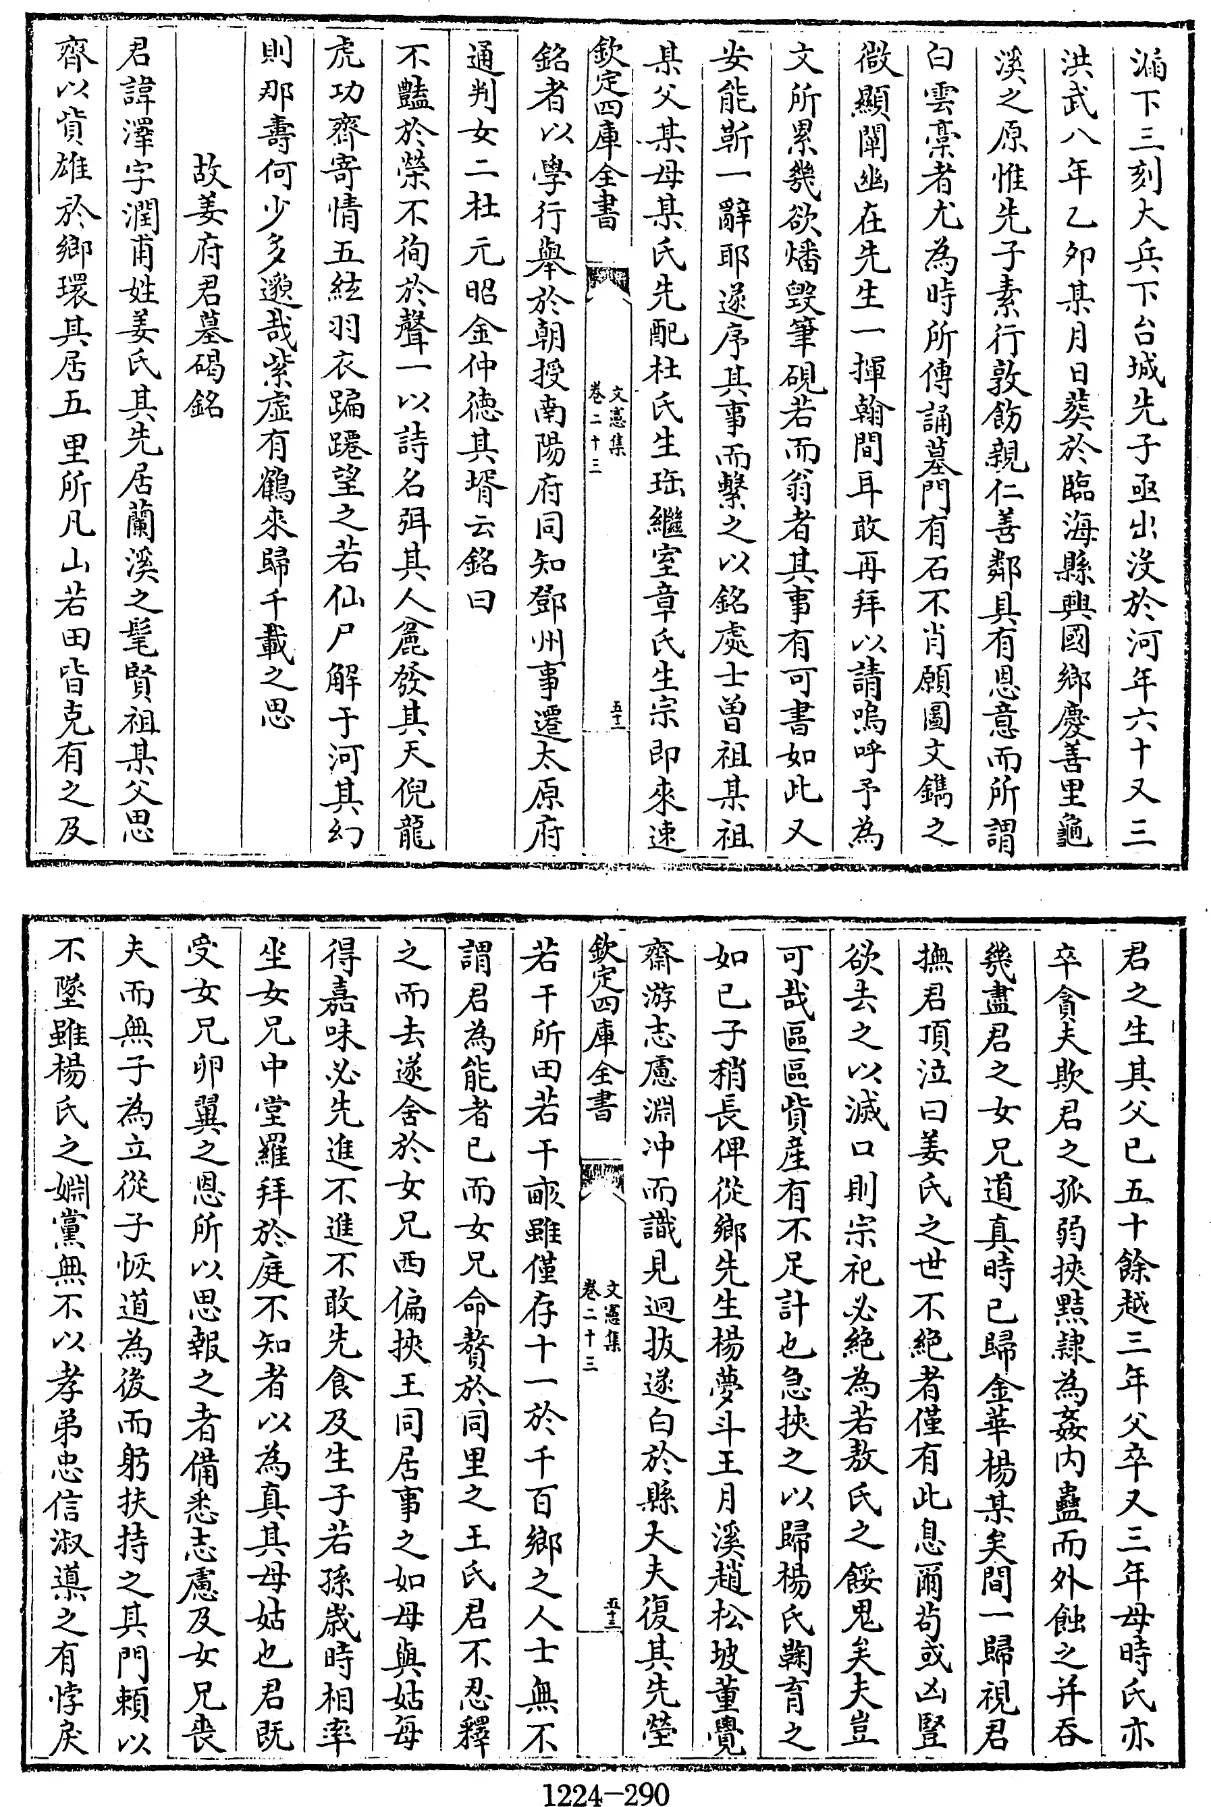 漏下三刻大兵下台城先子亟出沒於河年六十又三
洪武八年乙夘某月日葬於臨海縣興國鄉慶善里龜
溪之原惟先子素行敦飭親仁善鄰具有恩意而所謂
白雲稾者尤為時所傳誦墓門有石不肖願圖文鐫之
微顯闡幽在先生一揮翰間耳敢再拜以請嗚呼予為
文所累幾欲燔毀筆硯若而翁者其事有可書如此又
安能靳一辭耶遂序其事而繫之以銘處士曾祖某祖
某父某母某氏先配杜氏生珤繼室章氏生宗即來速
欽定四庫全書
文憲集
卷二十三
五十二
銘者以學行舉於朝授南陽府同知鄧州事遷太原府
通判女二杜元昭金仲徳其壻云銘曰
不豔於榮不徇於聲一以詩名弭其人麄發其天倪龍
虎功齊寄情五絃羽衣蹁躚望之若仙尸解于河其幻
則那壽何少多邈哉紫虛有鶴來歸千載之思
故姜府君墓碣銘
君諱澤字潤甫姓姜氏其先居蘭溪之髦賢祖某父思
齊以貲雄於鄉環其居五里所凡山若田皆克有之及
君之生其父已五十餘越三年父卒又三年母時氏亦
卒貪夫欺君之孤弱挾黠隷為姦内蠱而外蝕之并吞
幾盡君之女兄道真時已歸金華楊某矣間一歸視君
撫君頂泣曰姜氏之世不絶者僅有此息爾茍或凶豎
欲去之以滅口則宗祀必絶為若敖氏之餒鬼矣夫豈
可哉區區貲產有不足計也急挾之以歸楊氏鞠育之
如已子稍長俾從鄉先生楊夢斗王月溪趙松坡董覺
齋游志慮淵冲而識見迥拔遂白於縣大夫復其先塋
欽定四庫全書
文憲集
卷二十三
五十三
若干所田若干畝雖僅存十一於千百鄉之人士無不
謂君為能者已而女兄命贅於同里之王氏君不忍釋
之而去遂舍於女兄西偏挾王同居事之如母與姑每
得嘉味必先進不進不敢先食及生子若孫歲時相率
坐女兄中堂羅拜於庭不知者以為真其母姑也君既
受女兄卵翼之恩所以思報之者備悉志慮及女兄喪
夫而無子為立從子恢道為後而躬扶持之其門頼以
不墜雖楊氏之婣黨無不以孝弟忠信淑𨗳之有悖戾
1224-290